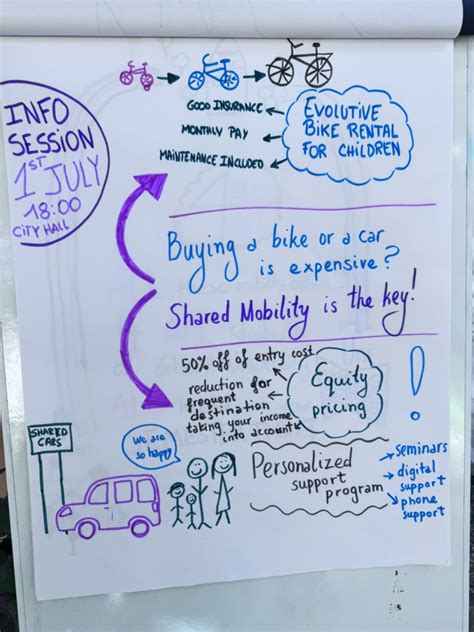 INFO
SESSION
1ST JULY
18:00
CITY HALL
GOOD INSURANCE
MONTHLY PAY
MAINTENANCE INCLUDED
EVOLUTIVE
BIKE RENTAL
FOR CHILDREN
Buying a bike or a car
is expensive?
Shared Mobility is the key!
50% off of entry cost
reduction for
frequent
destination
taking your income
into account
Equity
pricing
!
SHARED
CARS
We are
so happy
Personalized
support
program
seminars
digital
support
phone
support